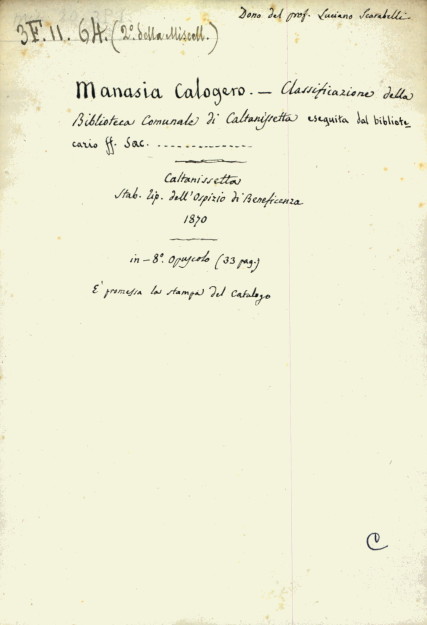 Dono del prof. Luciano Scarabelli.
3F. 11. 64. (2º della Miscell.)
Manasia Calogero. — Classificazione della
Biblioteca Comunale di Caltanissetta eseguita dal bibliote-
cario ff. Sac. ................
Caltanissetta
Stab. tip. dell'Ospizio di Beneficenza
1870
in-8º. Opuscolo (33 pag.)
E' promessa la stampa del Catalogo
C